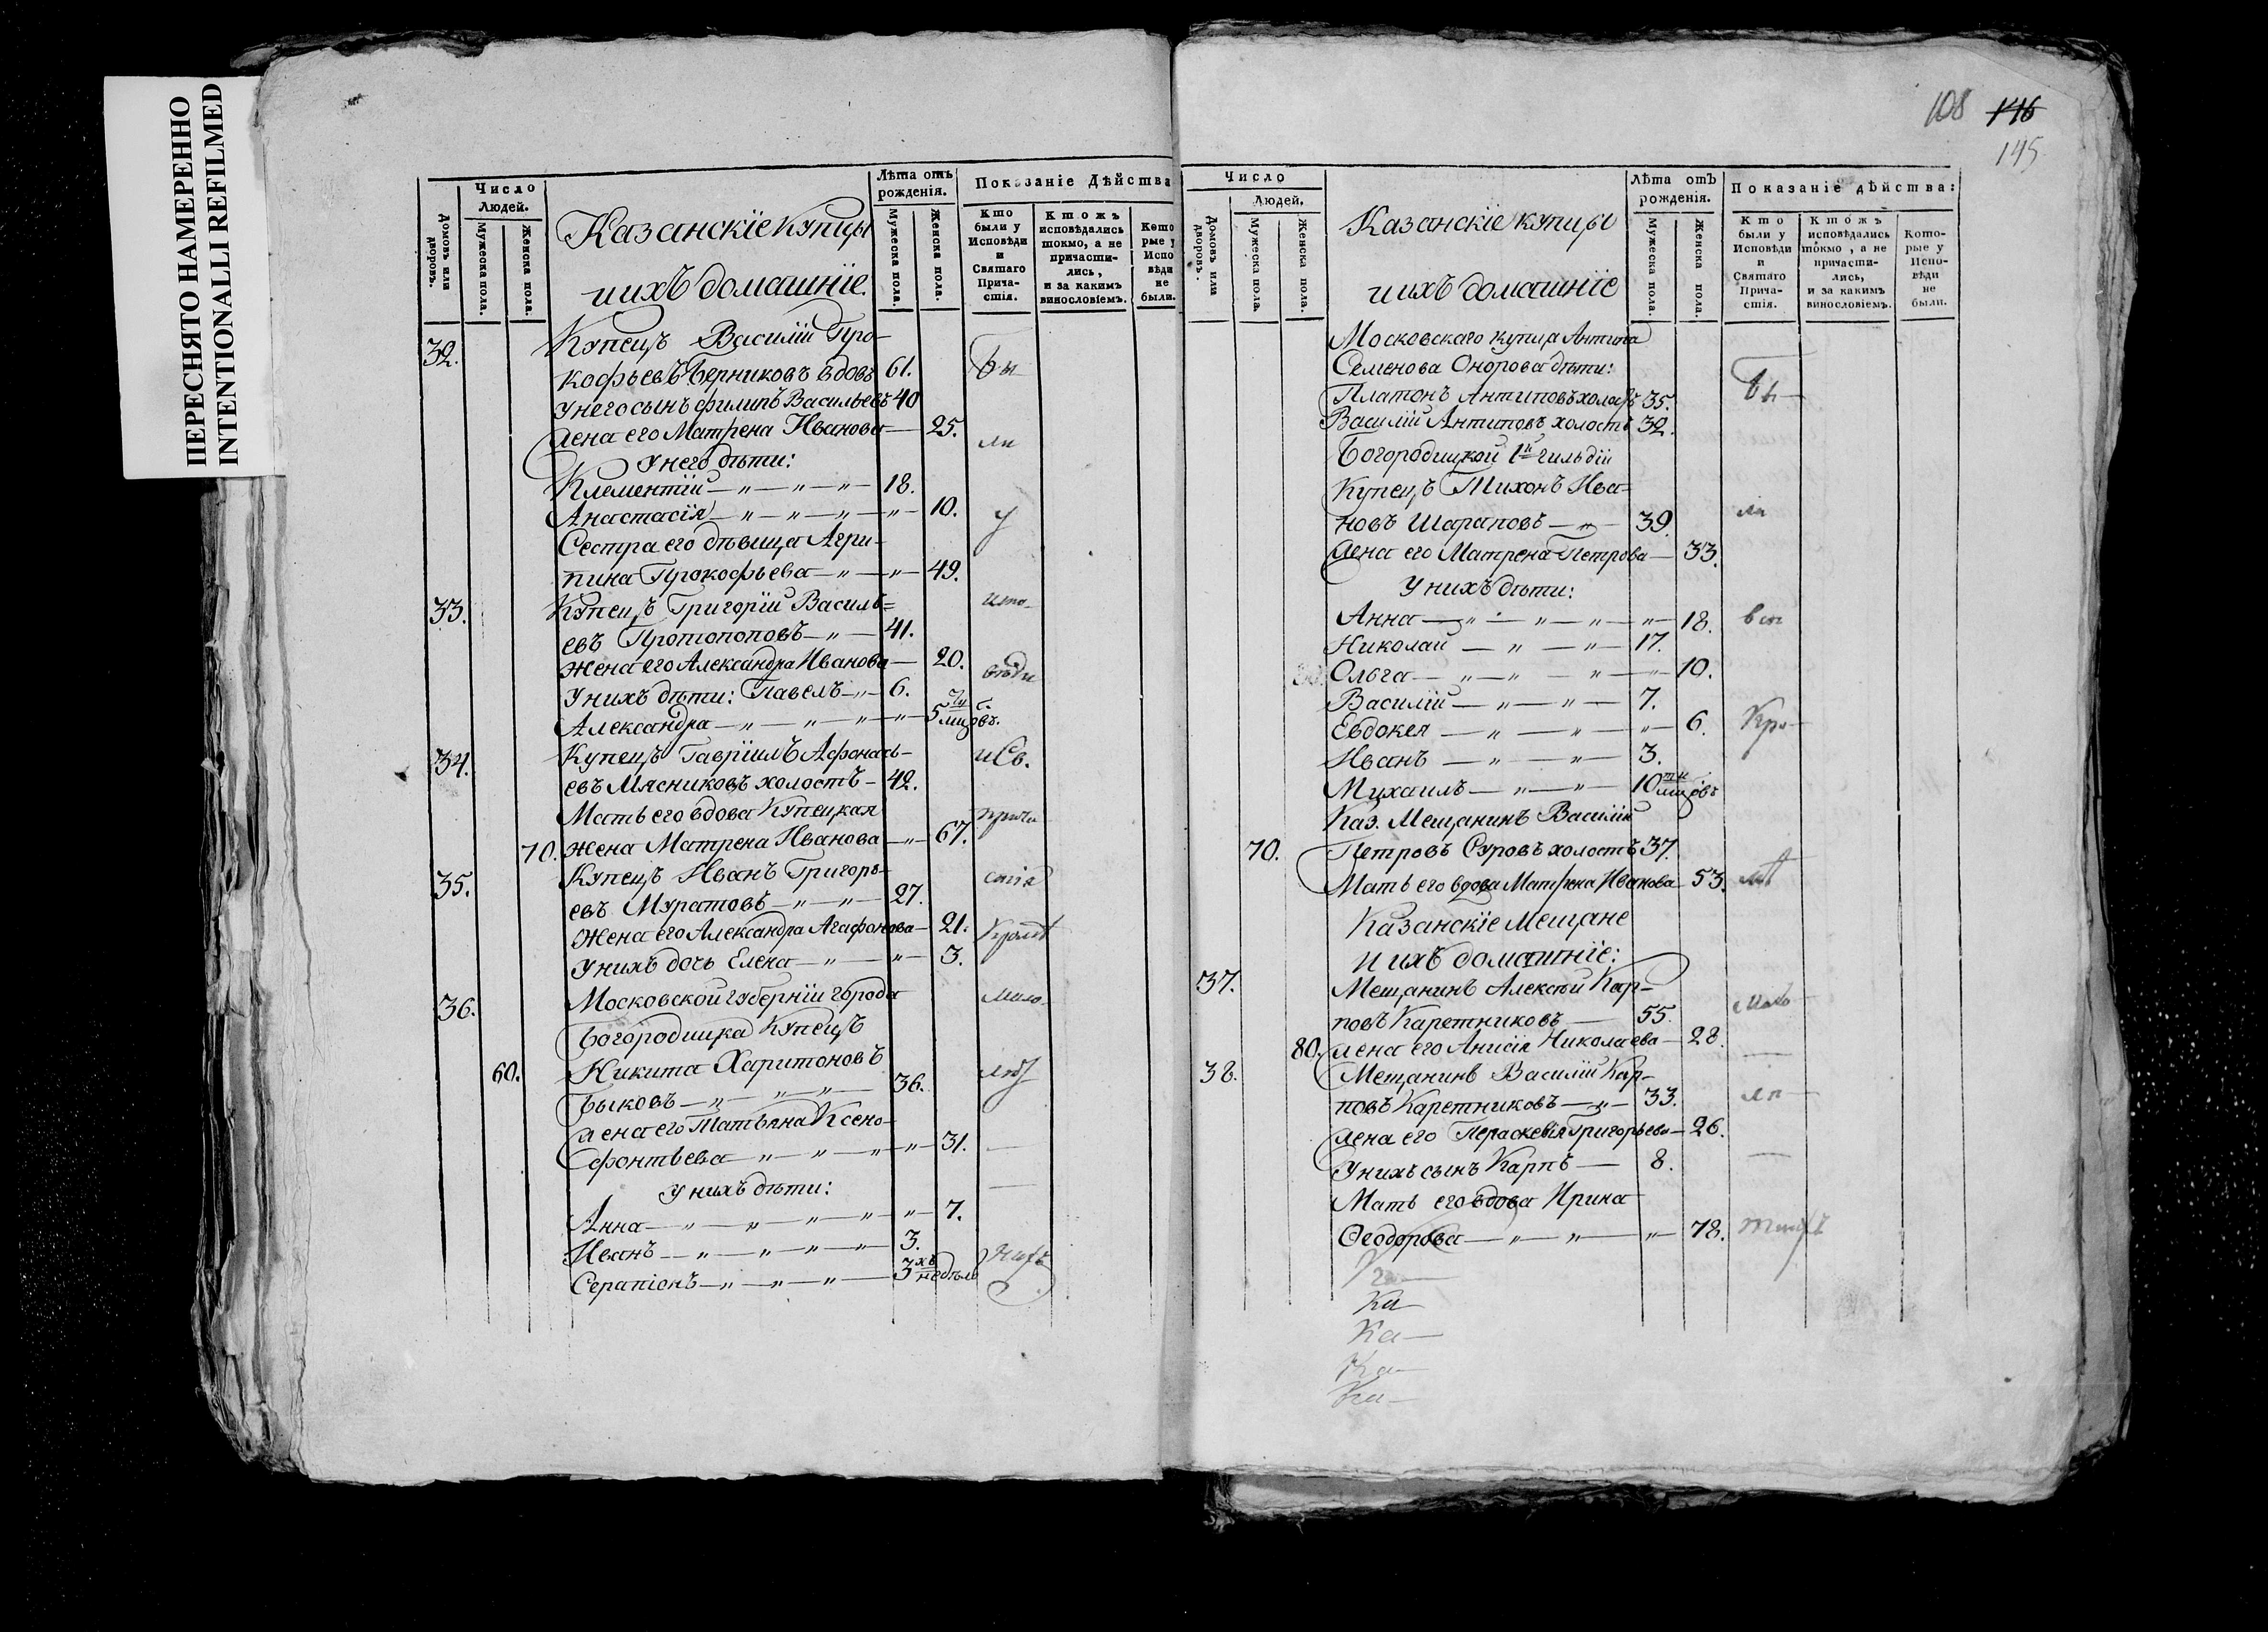 ПЕРЕСНЯТО НАМЕРЕННО
INTENTIONALLI REFILMED
Домовъ или дворовъ.
Число
Людей.
Мужеска пола.
Женска пола.
Казанскіе Купцы
и ихъ домашніе.
Лѣта отъ рожденія.
Мужеска пола.
Женска пола.
Показаніе Дѣйства
Кто были у Исповѣди и Святаго Прича-стія.
Ктожъ исповѣдались токмо, а не причасти-лись, и за какимъ винословіемъ.
Кото рые у Испо вѣди не были.
32. Купецъ Василій Про-
кофьевъ Верниковъ вдовъ 61. бы
У него сынъ Филипъ Васильевъ 40
Жена его Матрена Иванова — 25. ли
У него дѣти:
Клементій — „ — „ — „ — 18.
Анастасія — „ — „ — „ — „ — 10. у
Сестра его дѣвица Агри-
пина Прокофьева — „ — „ — 49.
33. Купецъ Григорій Василь= испо-
евъ Протопоповъ — „ — 41.
Жена его Александра Иванова — 20. вѣди
У нихъ дѣти: Павелъ — „ — 6.
Александра — „ — „ — „ — „ — 5 мцовъ.
34. Купецъ Гавріилъ Афонась- и Св.
евъ Мясниковъ холостъ — 42.
Мать его вдова Купецкая прича
70. жена Матрена Иванова — „ — 67.
35. Купецъ Иванъ Григорь- стія
евъ Муратовъ — „ — „ — 27.
Жена его Александра Агафонова — 21. кромѣ
У нихъ дочь Елена — „ — „ — 3.
36. Московской губерніи города мало-
Богородицка Купецъ
60. Никита Харитоновъ
Быковъ — „ — „ — „ — 36.
Жена его Татьяна Ксено-
фонтьева — „ — „ — „ — „ — 31. —
У нихъ дѣти: —
Анна — „ — „ — „ — „ — „ — 7.
Иванъ — „ — „ — „ — „ — 3.
Серапіонъ — „ — „ — „ — 3хъ недѣль
108 146
145
Домовъ или дворовъ.
Число
Людей.
Мужеска пола.
Женска пола.
Казанскіе купцы
и ихъ домашніе
Лѣта отъ рожденія.
Мужеска пола.
Женска пола.
Показаніе дѣйства:
Кто были у Исповѣди и Святаго Прича-стія.
Ктожъ исповѣдались токмо, а не причасти-лись, и за какимъ винословіемъ.
Кото-рые у Испо-вѣди не были.
Московскаго купца Антипа
Семенова Онорова дѣти:
Платонъ Антиповъ холостъ 35. бы —
Василій Антиповъ холостъ 32.
Богородицкой 1й гильдіи
Купецъ Тихонъ Ива=
новъ Шараповъ — „ — 39. ли
Жена его Матрена Петрова — 33.
У нихъ дѣти:
Анна — „ — „ — „ — „ — 18. всѣ
Николай — „ — „ — 17.
Ольга — „ — „ — „ — „ — 10.
Василій — „ — „ — 7.
Евдокея — „ — „ — „ — 6. кро-
Иванъ — „ — „ — 3.
Михаилъ — „ — „ — 10ти мцовъ
Каз. Мещанинъ Василій
70. Петровъ Суровъ холостъ 37.
Мать его вдова Матрена Иванова 53. мѣ
Казанскіе Мещане
и ихъ домашніе:
37. Мещанинъ Алексѣй Кар- мало-
повъ Каретниковъ — 55.
80. Жена его Анисія Николаева — 28. —
38. Мещанинъ Василій Кар-
повъ Каретниковъ — „ — 33. лѣ —
Жена его Параскевія Григорьева — 26.
У нихъ сынъ Карпъ — 8. —
Мать его вдова Ирина
Ѳеодорова — „ — „ — „ — 78.
Ка —
Ка —
Ка —
Ка —